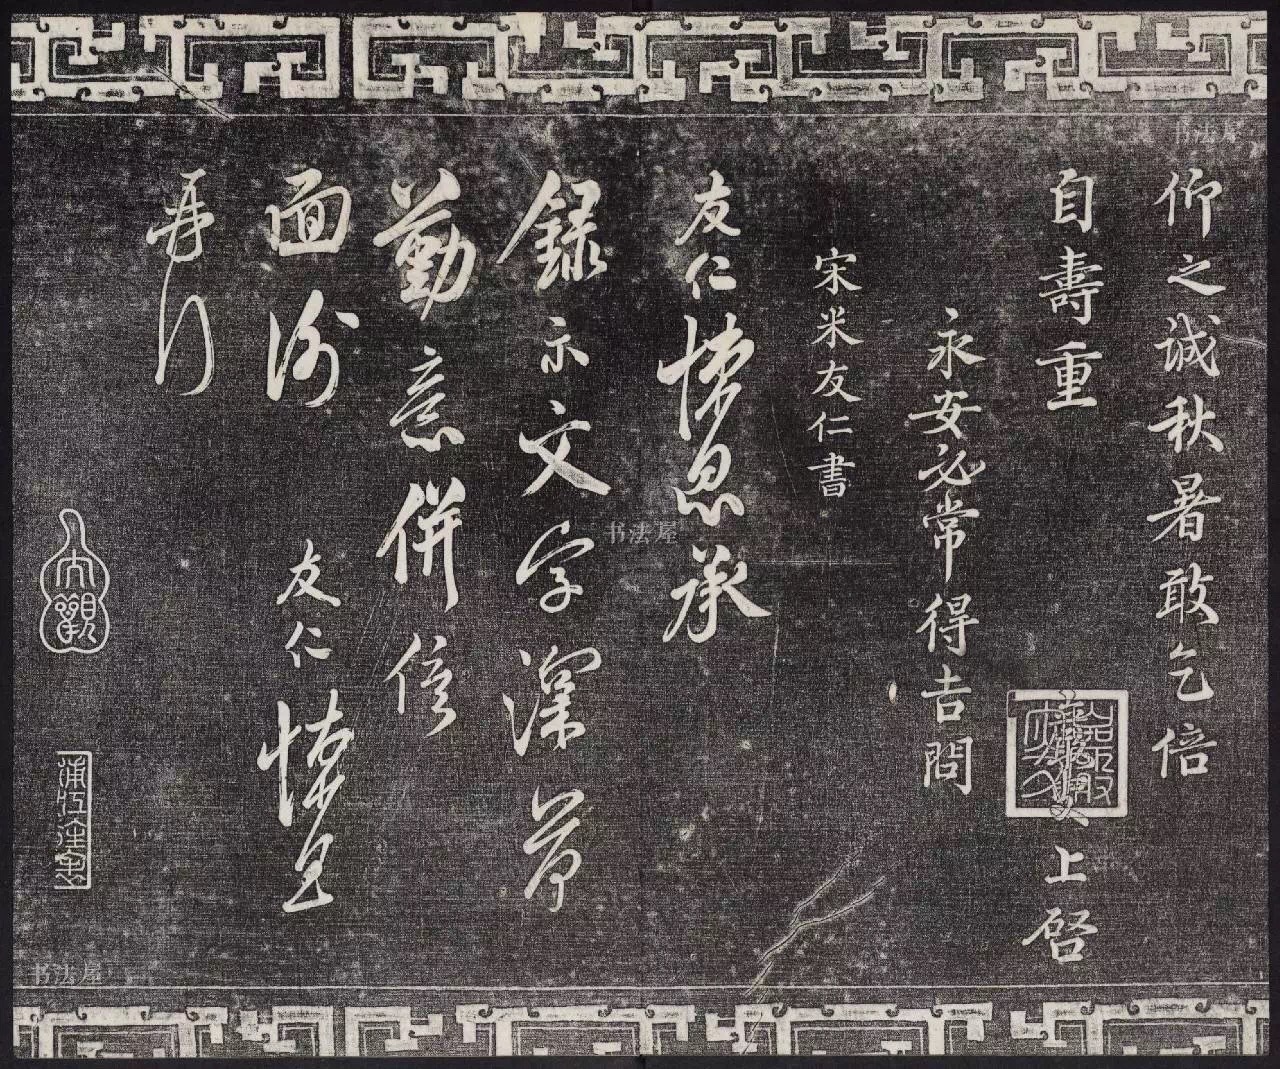 仰之诚秋暑敢乞倍
自壽重
上啓
永安必常得吉問
宋米友仁書
友仁悚息承
録示文字深荷
勤意併俟
面謝
友仁悚息
再行
大觀
浦江
书法屋
书法屋
书法屋